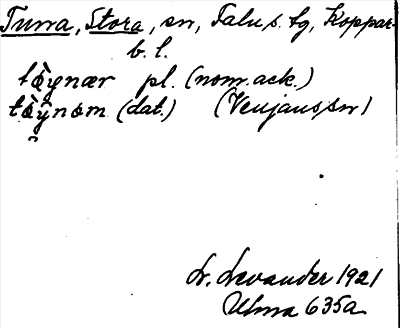 Tuna, Stora, sn, Falu s. tg, Koppar-
b. l.
tø̀ynær pl. (nom. ack.)
tø̀ynom (dat.) (Venjans sn)
L. Levander 1921
Ulma 635a